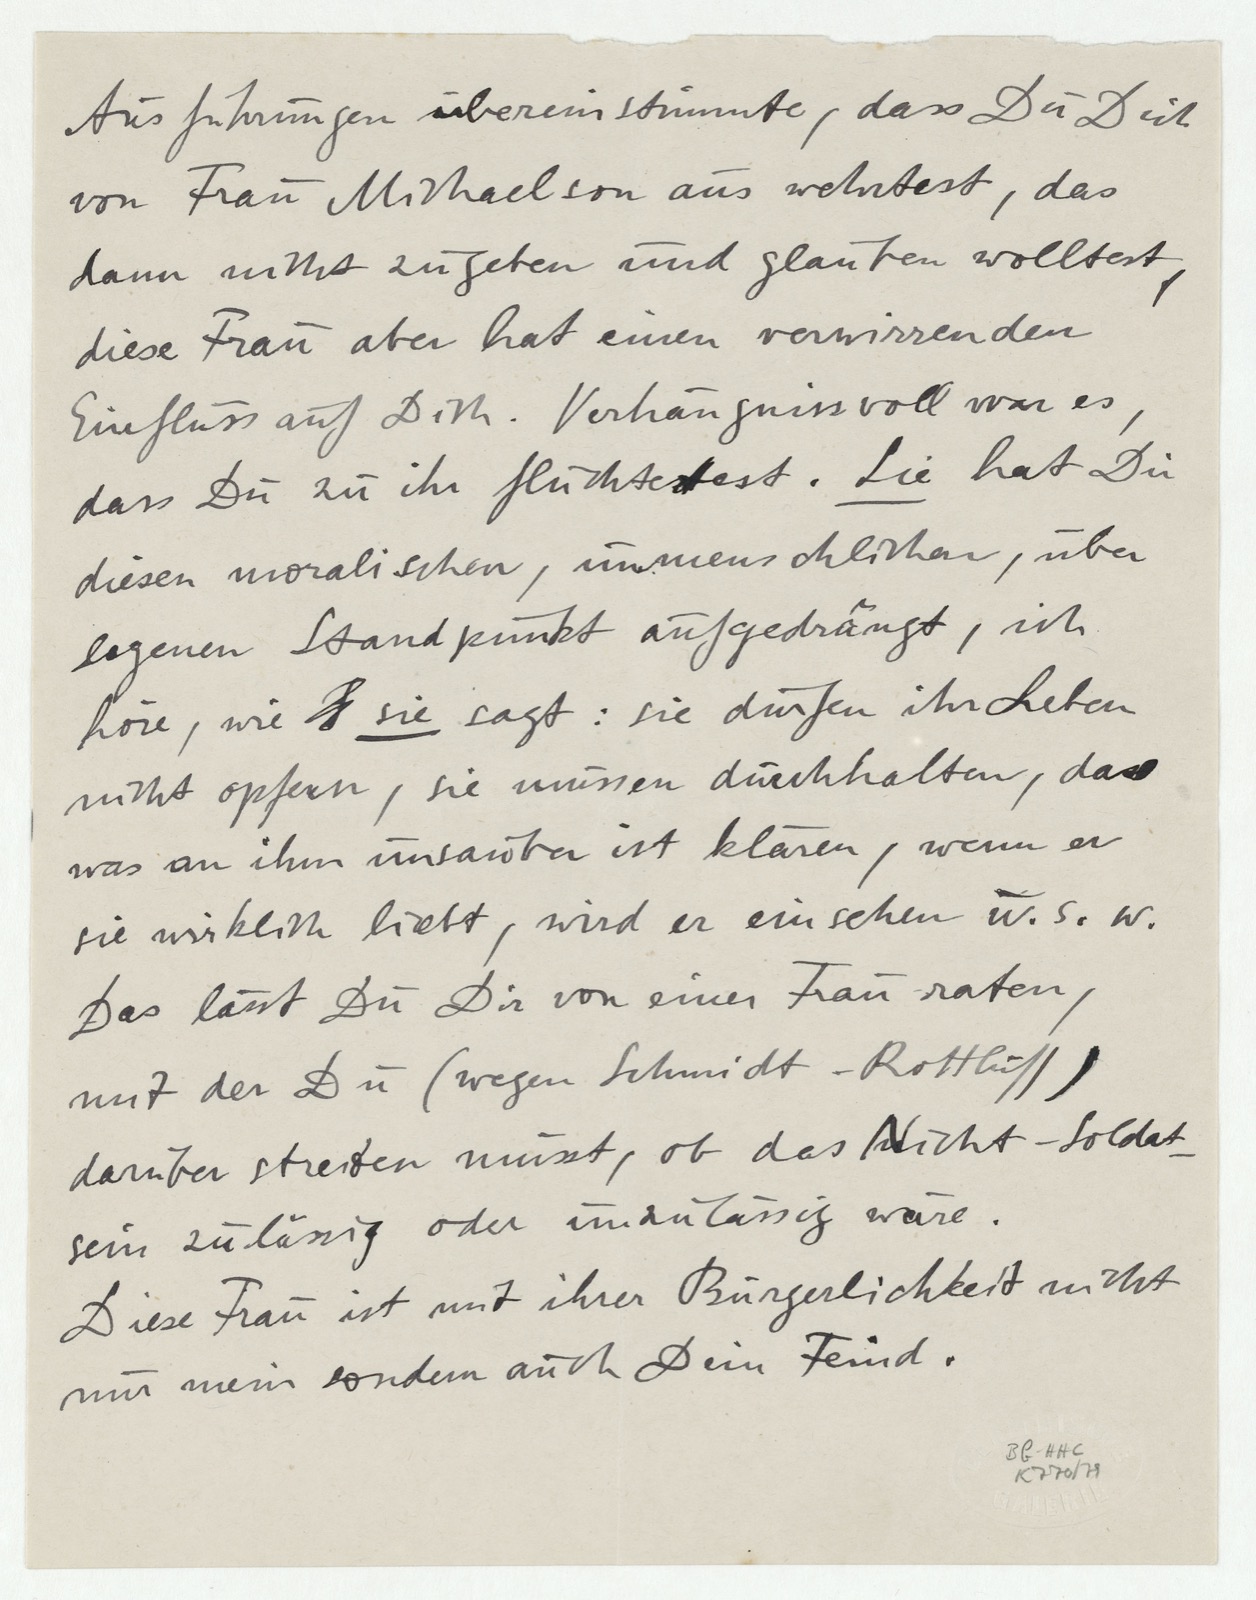 Ausführungen übereinstimmte, dass Du Dich
von Frau Michaelson aus wehrtest, das
dann nicht zugeben und glauben wolltest,
diese Frau aber hat einen verwirrenden
Einfluss auf Dich. Verhängnissvoll war es,
dass Du zu ihr flüchtetest. Sie hat Dir
diesen moralischen, unmenschlichen, über
legenen Standpunkt aufgedrängt, ich
höre, wie sie sagt: sie dürfen ihr Leben
nicht opfern, sie müssen durchhalten, das
was an ihm unsauber ist klären, wenn er
sie wirklich liebt, wird er einsehen u. s. w.
Das lässt Du Dir von einer Frau raten,
mit der Du (wegen Schmidt-Rottluff)
darüber streiten musst, ob das Nicht-Soldat-
sein zulässig oder unzulässig wäre.
Diese Frau ist mit ihrer Bürgerlichkeit nicht
nur mein sondern auch Dein Feind.
BG-HHC
K 770/79